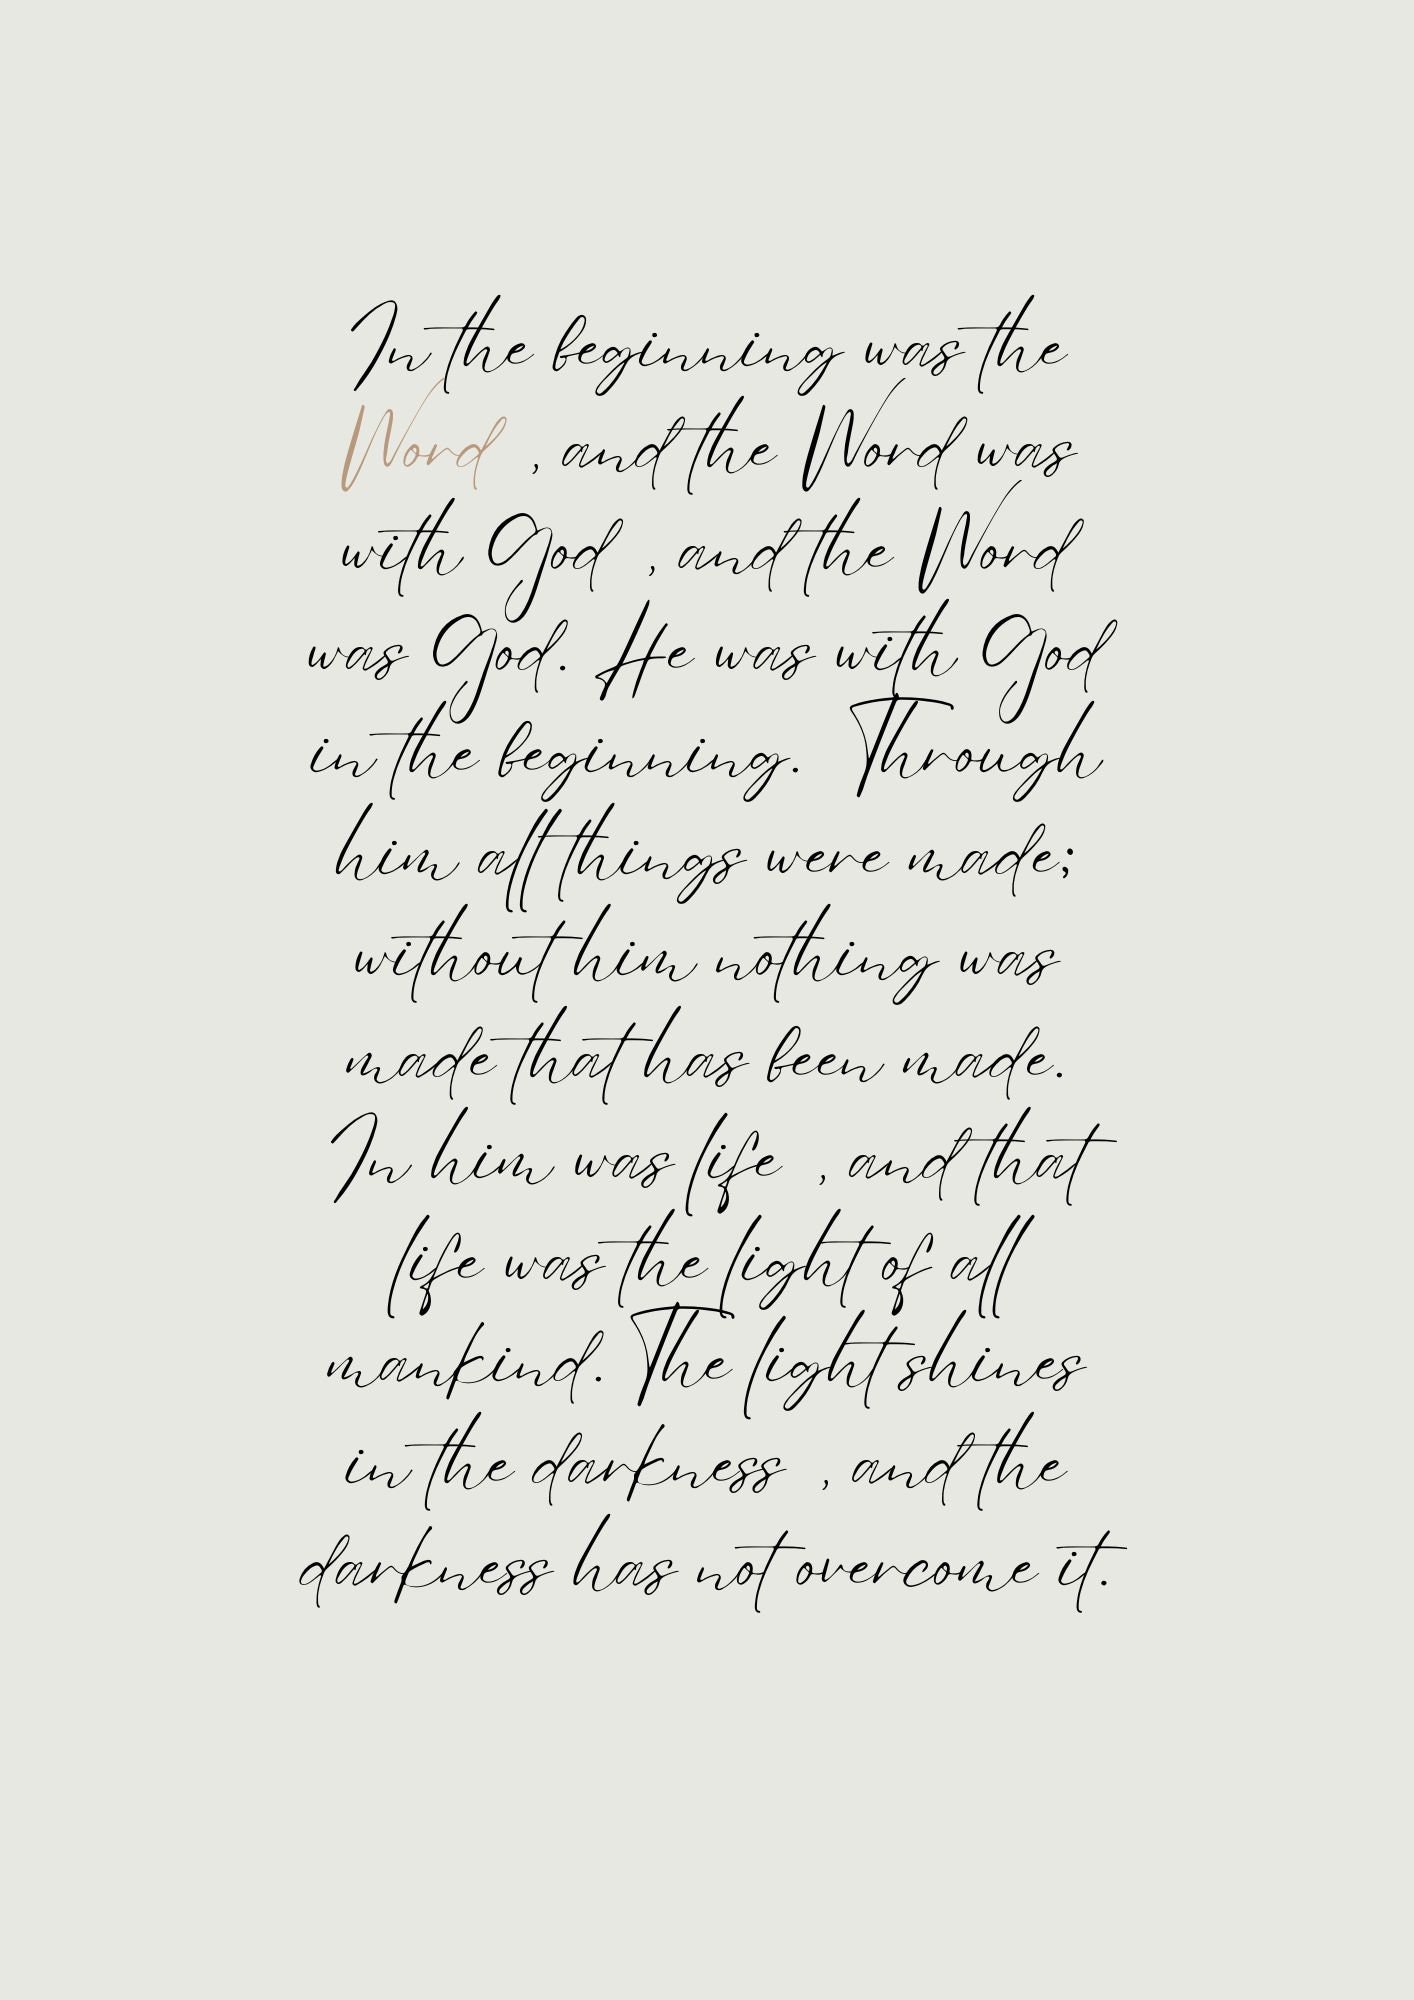 In the beginning was the
Word , and the Word was
with God , and the Word
was God. He was with God
in the beginning. Through
him all things were made;
without him nothing was
made that has been made.
In him was life , and that
life was the light of all
mankind. The light shines
in the darkness , and the
darkness has not overcome it.